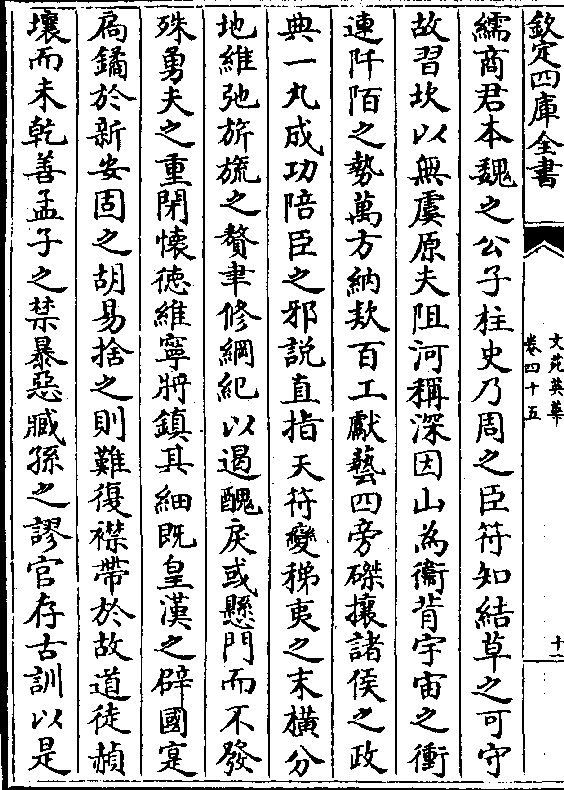 欽定四庫全書
文苑英華
卷四十五
十一
繻商君本魏之公子柱史乃周之臣符知結草之可守
故習坎以無虞原夫阻河稱深因山為衞背宇宙之衝
連阡陌之勢萬方納欵百工獻藝四旁磔攘諸侯之政
典一丸成功陪臣之邪説直指天符變稊夷之末橫分
地維弛旂旒之贅聿修綱紀以遏醜戾或懸門而不發
殊勇夫之重閉懷德維寧將鎮其細既皇漢之辟國寔
扄鐍於新安固之胡易捨之則難復襟帶於故道徒赬
壤而未乾善孟子之禁暴惡臧孫之謬官存古訓以是